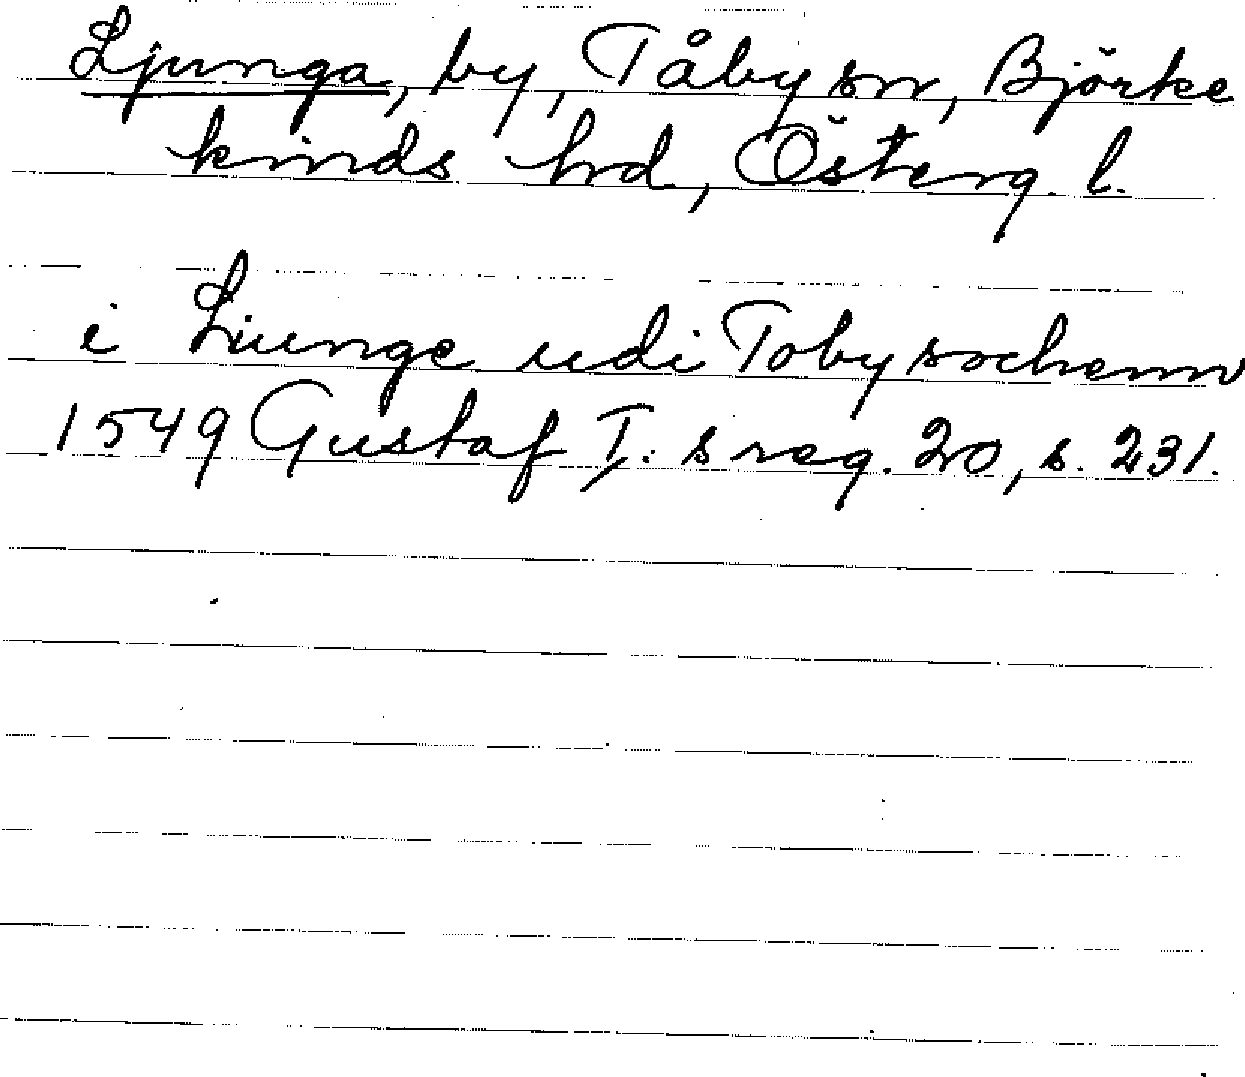 Ljunga, by, Tåby sn, Björke
kinds hrd, Österg. l.
i Liunge udi Toby sochenn
1549 Gustaf I:s reg. 20, s. 231.